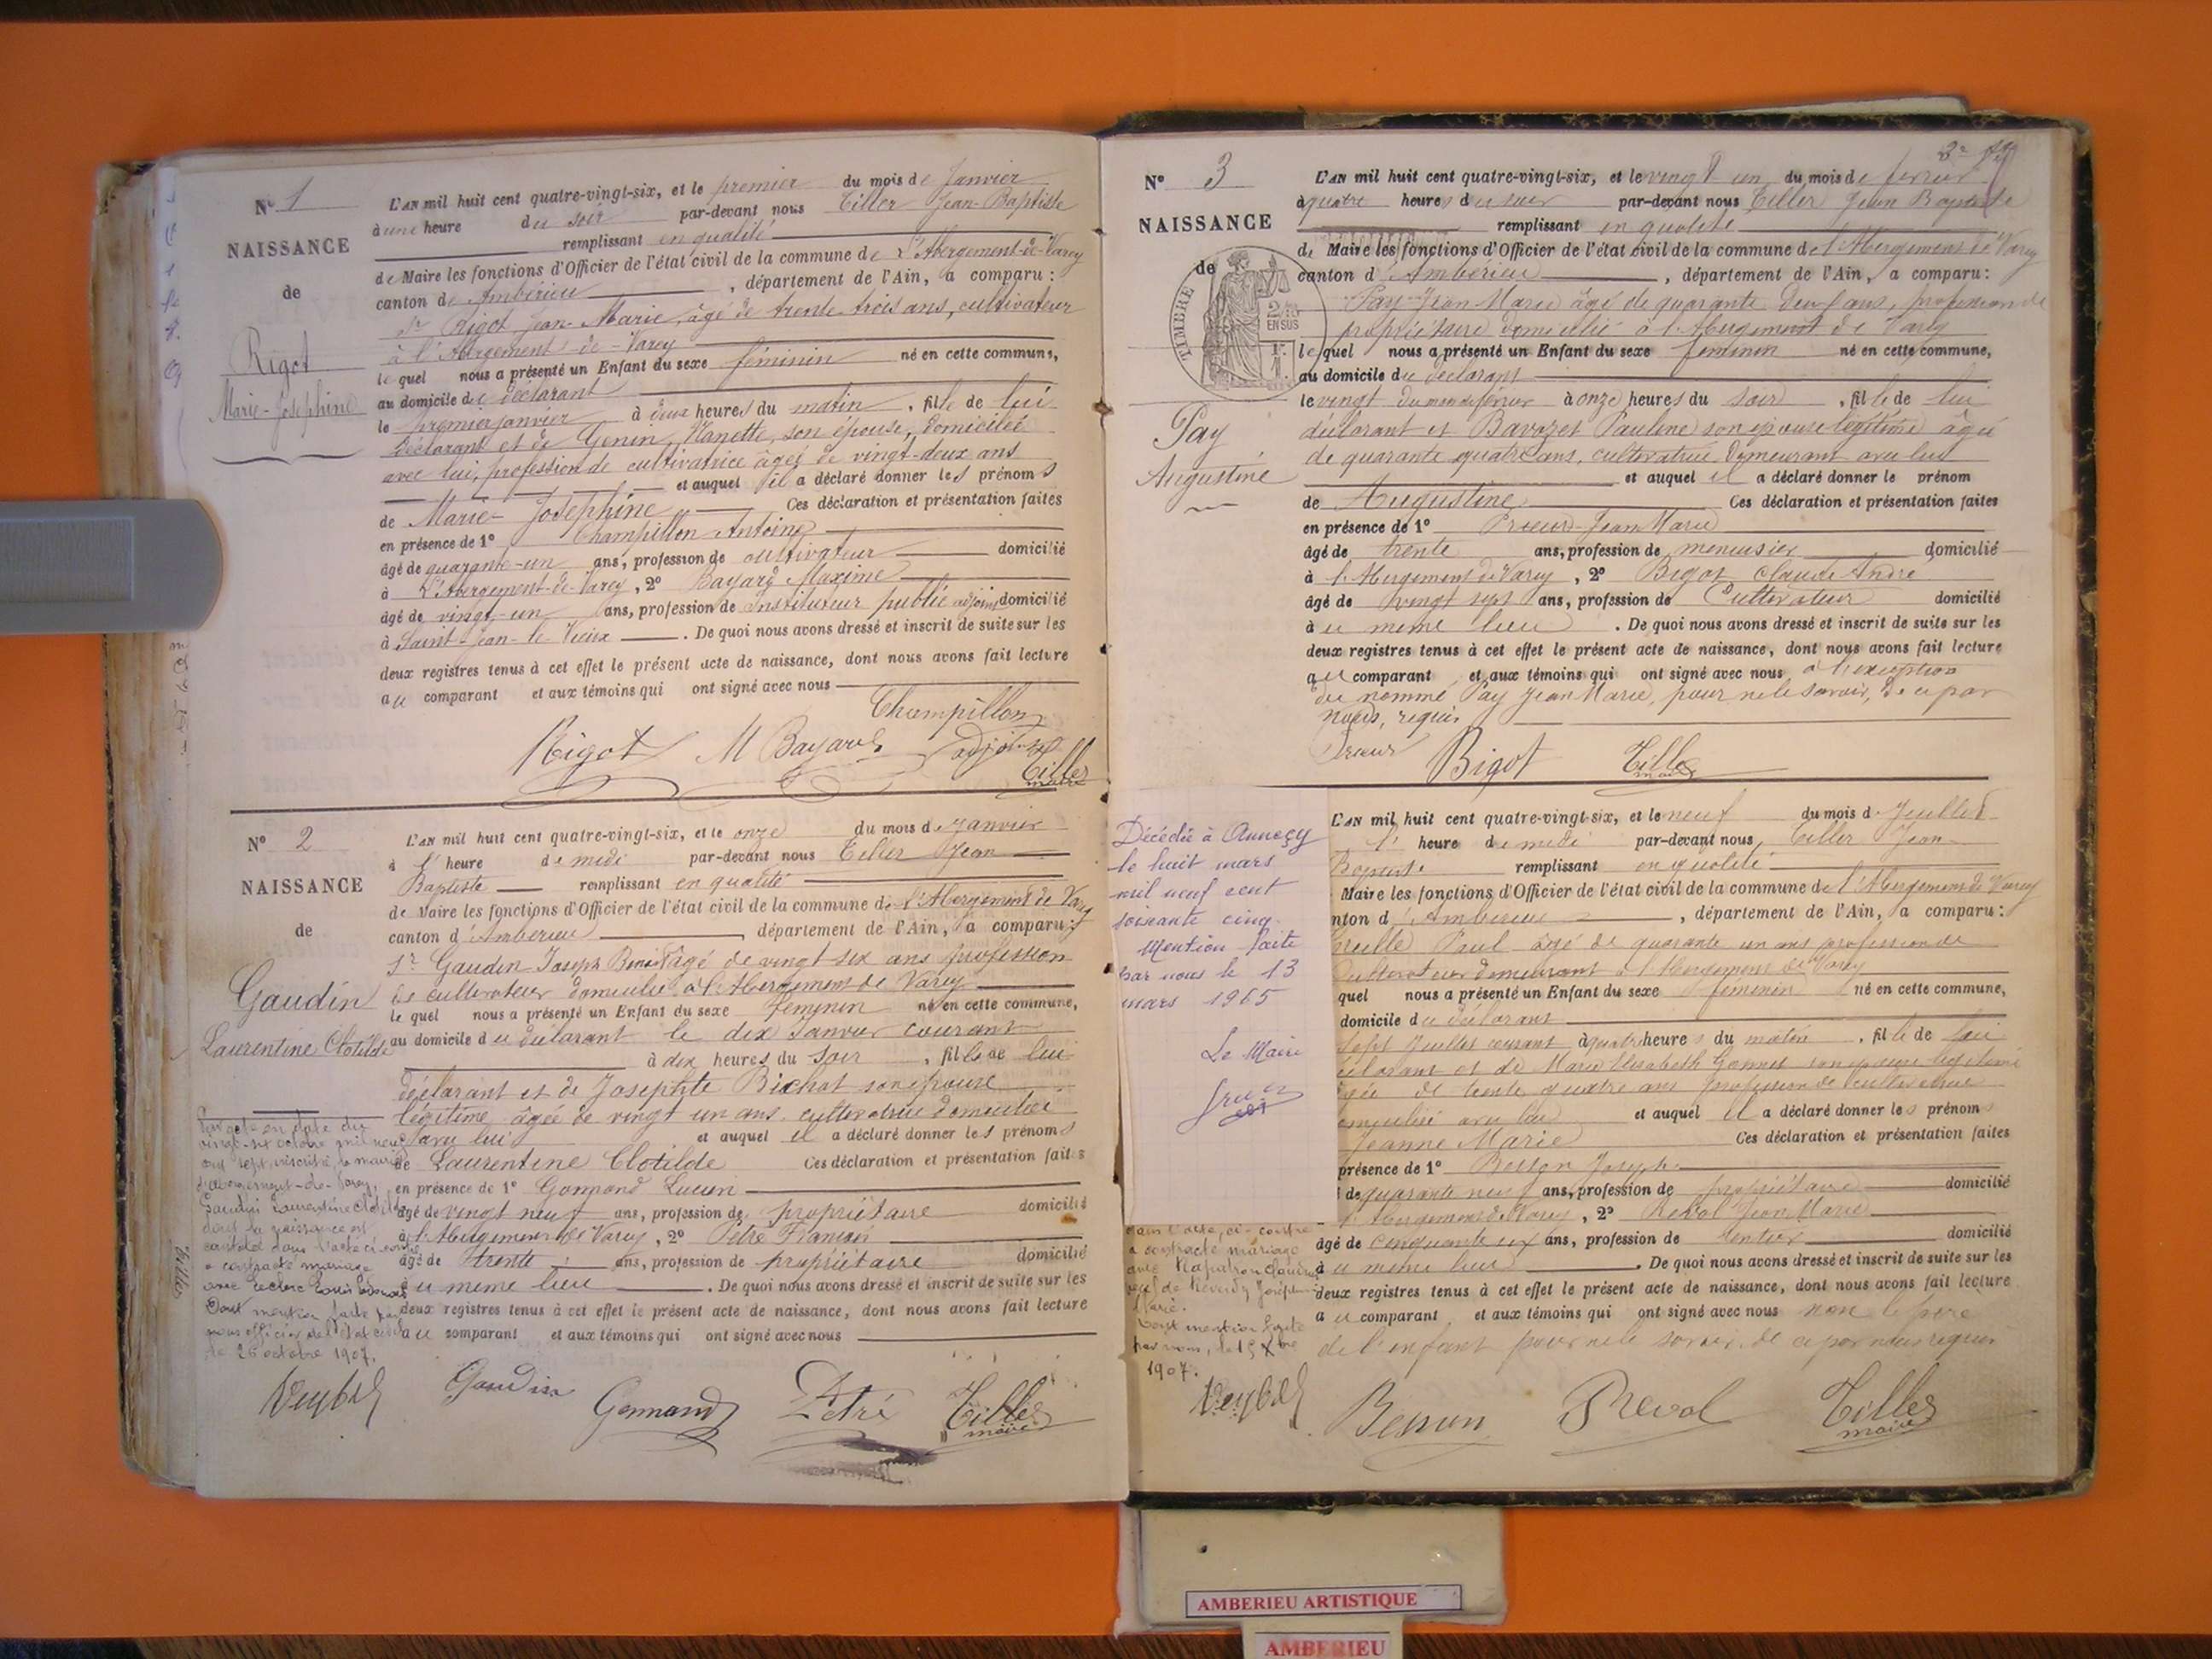 N° 1
NAISSANCE
de
Rigot
Marie-Joséphine
L'AN mil huit cent quatre-vingt-six, et le premier du mois de Janvier
à une heure du soir par-devant nous Tiller Jean-Baptiste
remplissant en qualité
de Maire les fonctions d'Officier de l'état civil de la commune de L'Abergement-de-Varey
canton de Ambérieu, département de l'Ain, a comparu:
Sr Rigot Jean-Marie, âgé de trente trois ans, cultivateur
à l'Abergement-de-Varey
le quel nous a présenté un Enfant du sexe féminin né en cette commune,
au domicile du déclarant
le premier janvier à deux heures du matin, fille de lui
déclarant et de Genin, Nanette, son épouse, domiciliée
avec lui, profession de cultivatrice âgée de vingt-deux ans
et auquel il a déclaré donner les prénoms
de Marie-Joséphine Ces déclaration et présentation faites
en présence de 1° Champillon Antoine
âgé de quarante-un ans, profession de cultivateur domicilié
à L'Abergement-de-Varey, 2° Bayard Maxime
âgé de vingt-un ans, profession de Instituteur public adjoint domicilié
à Saint-Jean-le-Vieux. De quoi nous avons dressé et inscrit de suite sur les
deux registres tenus à cet effet le présent acte de naissance, dont nous avons fait lecture
au comparant et aux témoins qui ont signé avec nous
Champillon
Rigot M Bayard adjoint Tiller
maire
N° 2
NAISSANCE
de
Gaudin
Laurentine Clotilde
L'AN mil huit cent quatre-vingt-six, et le onze du mois de Janvier
à l' heure de midi par-devant nous Tiller Jean
Baptiste remplissant en qualité
de Maire les fonctions d'Officier de l'état civil de la commune de l'Abergement de Varey
canton d'Ambérieu, département de l'Ain, a comparu:
Sr Gaudin Joseph Benoit âgé de vingt six ans profession
de cultivateur domicilié à l'Abergement de Varey
le quel nous a présenté un Enfant du sexe féminin né en cette commune,
au domicile du déclarant le dix Janvier courant
à dix heures du soir, fille de lui
déclarant et de Josephte Bichat son épouse
légitime âgée de vingt un ans cultivatrice domiciliée
avec lui et auquel il a déclaré donner les prénoms
de Laurentine Clotilde Ces déclaration et présentation faites
en présence de 1° Gormand Lucien
âgé de vingt neuf ans, profession de propriétaire domicilié
à l'Abergement de Varey, 2° Pétré François
âgé de trente ans, profession de propriétaire domicilié
à u meme lieu. De quoi nous avons dressé et inscrit de suite sur les
deux registres tenus à cet effet le présent acte de naissance, dont nous avons fait lecture
au comparant et aux témoins qui ont signé avec nous
Par acte en date du
vingt-six octobre mil neuf
cent sept, inscrit à la mairie
d'Abergement-de-Varey,
Gaudin Laurentine Clotilde
dont la naissance est
constatée dans l'acte ci-contre
a contracté mariage
avec Leclerc Louis
Dont mention faite par
nous officier de l'état civil
le 26 octobre 1907.
Gaudin Gormand Pétré Tiller
maire
N° 3
NAISSANCE
de
TIMBRE
EN SUS
Pay
Augustine
L'AN mil huit cent quatre-vingt-six, et le vingt un du mois de février
à quatre heures du soir par-devant nous Tiller Jean Baptiste
remplissant en qualité
de Maire les fonctions d'Officier de l'état civil de la commune de l'Abergement de Varey
canton d'Ambérieu, département de l'Ain, a comparu:
Pay Jean Marie âgé de quarante deux ans, profession de
propriétaire domicilié à l'Abergement de Varey
le quel nous a présenté un Enfant du sexe féminin né en cette commune,
au domicile du déclarant
le vingt du mois de février à onze heures du soir, fille de lui
déclarant et Bavozet Pauline son épouse légitime âgée
de quarante quatre ans, cultivatrice demeurant avec lui
et auquel il a déclaré donner le prénom
de Augustine Ces déclaration et présentation faites
en présence de 1° Prieur Jean Marie
âgé de trente ans, profession de menuisier domicilié
à l'Abergement de Varey, 2° Bigot Claude André
âgé de vingt sept ans, profession de Cultivateur domicilié
à u meme lieu. De quoi nous avons dressé et inscrit de suite sur les
deux registres tenus à cet effet le présent acte de naissance, dont nous avons fait lecture
au comparant et aux témoins qui ont signé avec nous à l'exception
du nommé Pay Jean Marie, pour ne le savoir, de ce par
nous, requis
Prieur Bigot Tiller
maire
Décédée à Annecy
le huit mars
mil neuf cent
soixante cinq.
Mention faite
par nous le 13
mars 1965
Le Maire
L'AN mil huit cent quatre-vingt-six, et le neuf du mois de Juillet
l' heure de midi par-devant nous Tiller Jean
Baptiste remplissant en qualité
Maire les fonctions d'Officier de l'état civil de la commune de l'Abergement de Varey
nton d'Ambérieu, département de l'Ain, a comparu:
Paul âgé de quarante un ans profession de
cultivateur demeurant à l'Abergement de Varey
quel nous a présenté un Enfant du sexe féminin né en cette commune,
domicile du déclarant
sept Juillet courant à quatre heures du matin, fille de lui
déclarant et de Marie Elisabeth Gonnet son épouse légitime
âgée de trente quatre ans profession de cultivatrice
domiciliée avec lui et auquel il a déclaré donner les prénoms
Jeanne Marie Ces déclaration et présentation faites
présence de 1° Besson Joseph
é de quarante neuf ans, profession de propriétaire domicilié
l'Abergement de Varey, 2° Reval Jean Marie
âgé de cinquante six ans, profession de rentier domicilié
à u meme lieu. De quoi nous avons dressé et inscrit de suite sur les
deux registres tenus à cet effet le présent acte de naissance, dont nous avons fait lecture
au comparant et aux témoins qui ont signé avec nous non le père
de l'enfant pour ne le savoir de ce par nous requis
dans l'acte, ci-contre
a contracté mariage
avec
Marie.
Dont mention faite
par nous, le 15 Xbre
1907.
Besson Reval Tiller
maire
AMBERIEU ARTISTIQUE
AMBERIEU